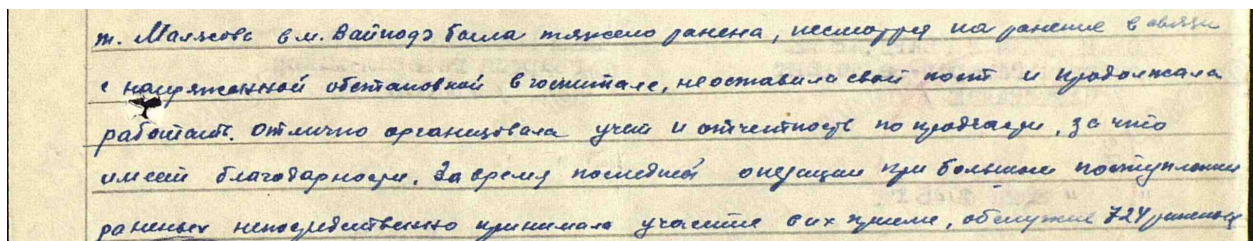 т. Малясова в м. Вайподэ была тяжело ранена, несмотря на ранение в связи
с напряженной обстановкой в госпитале, не оставила свой пост и продолжала
работать. Отлично организовала учет и отчетность по продчасти, за что
имеет благодарности. За время последней операции при большом поступлении
раненых непосредственно принимала участие в их приеме, обслужив 724 раненых